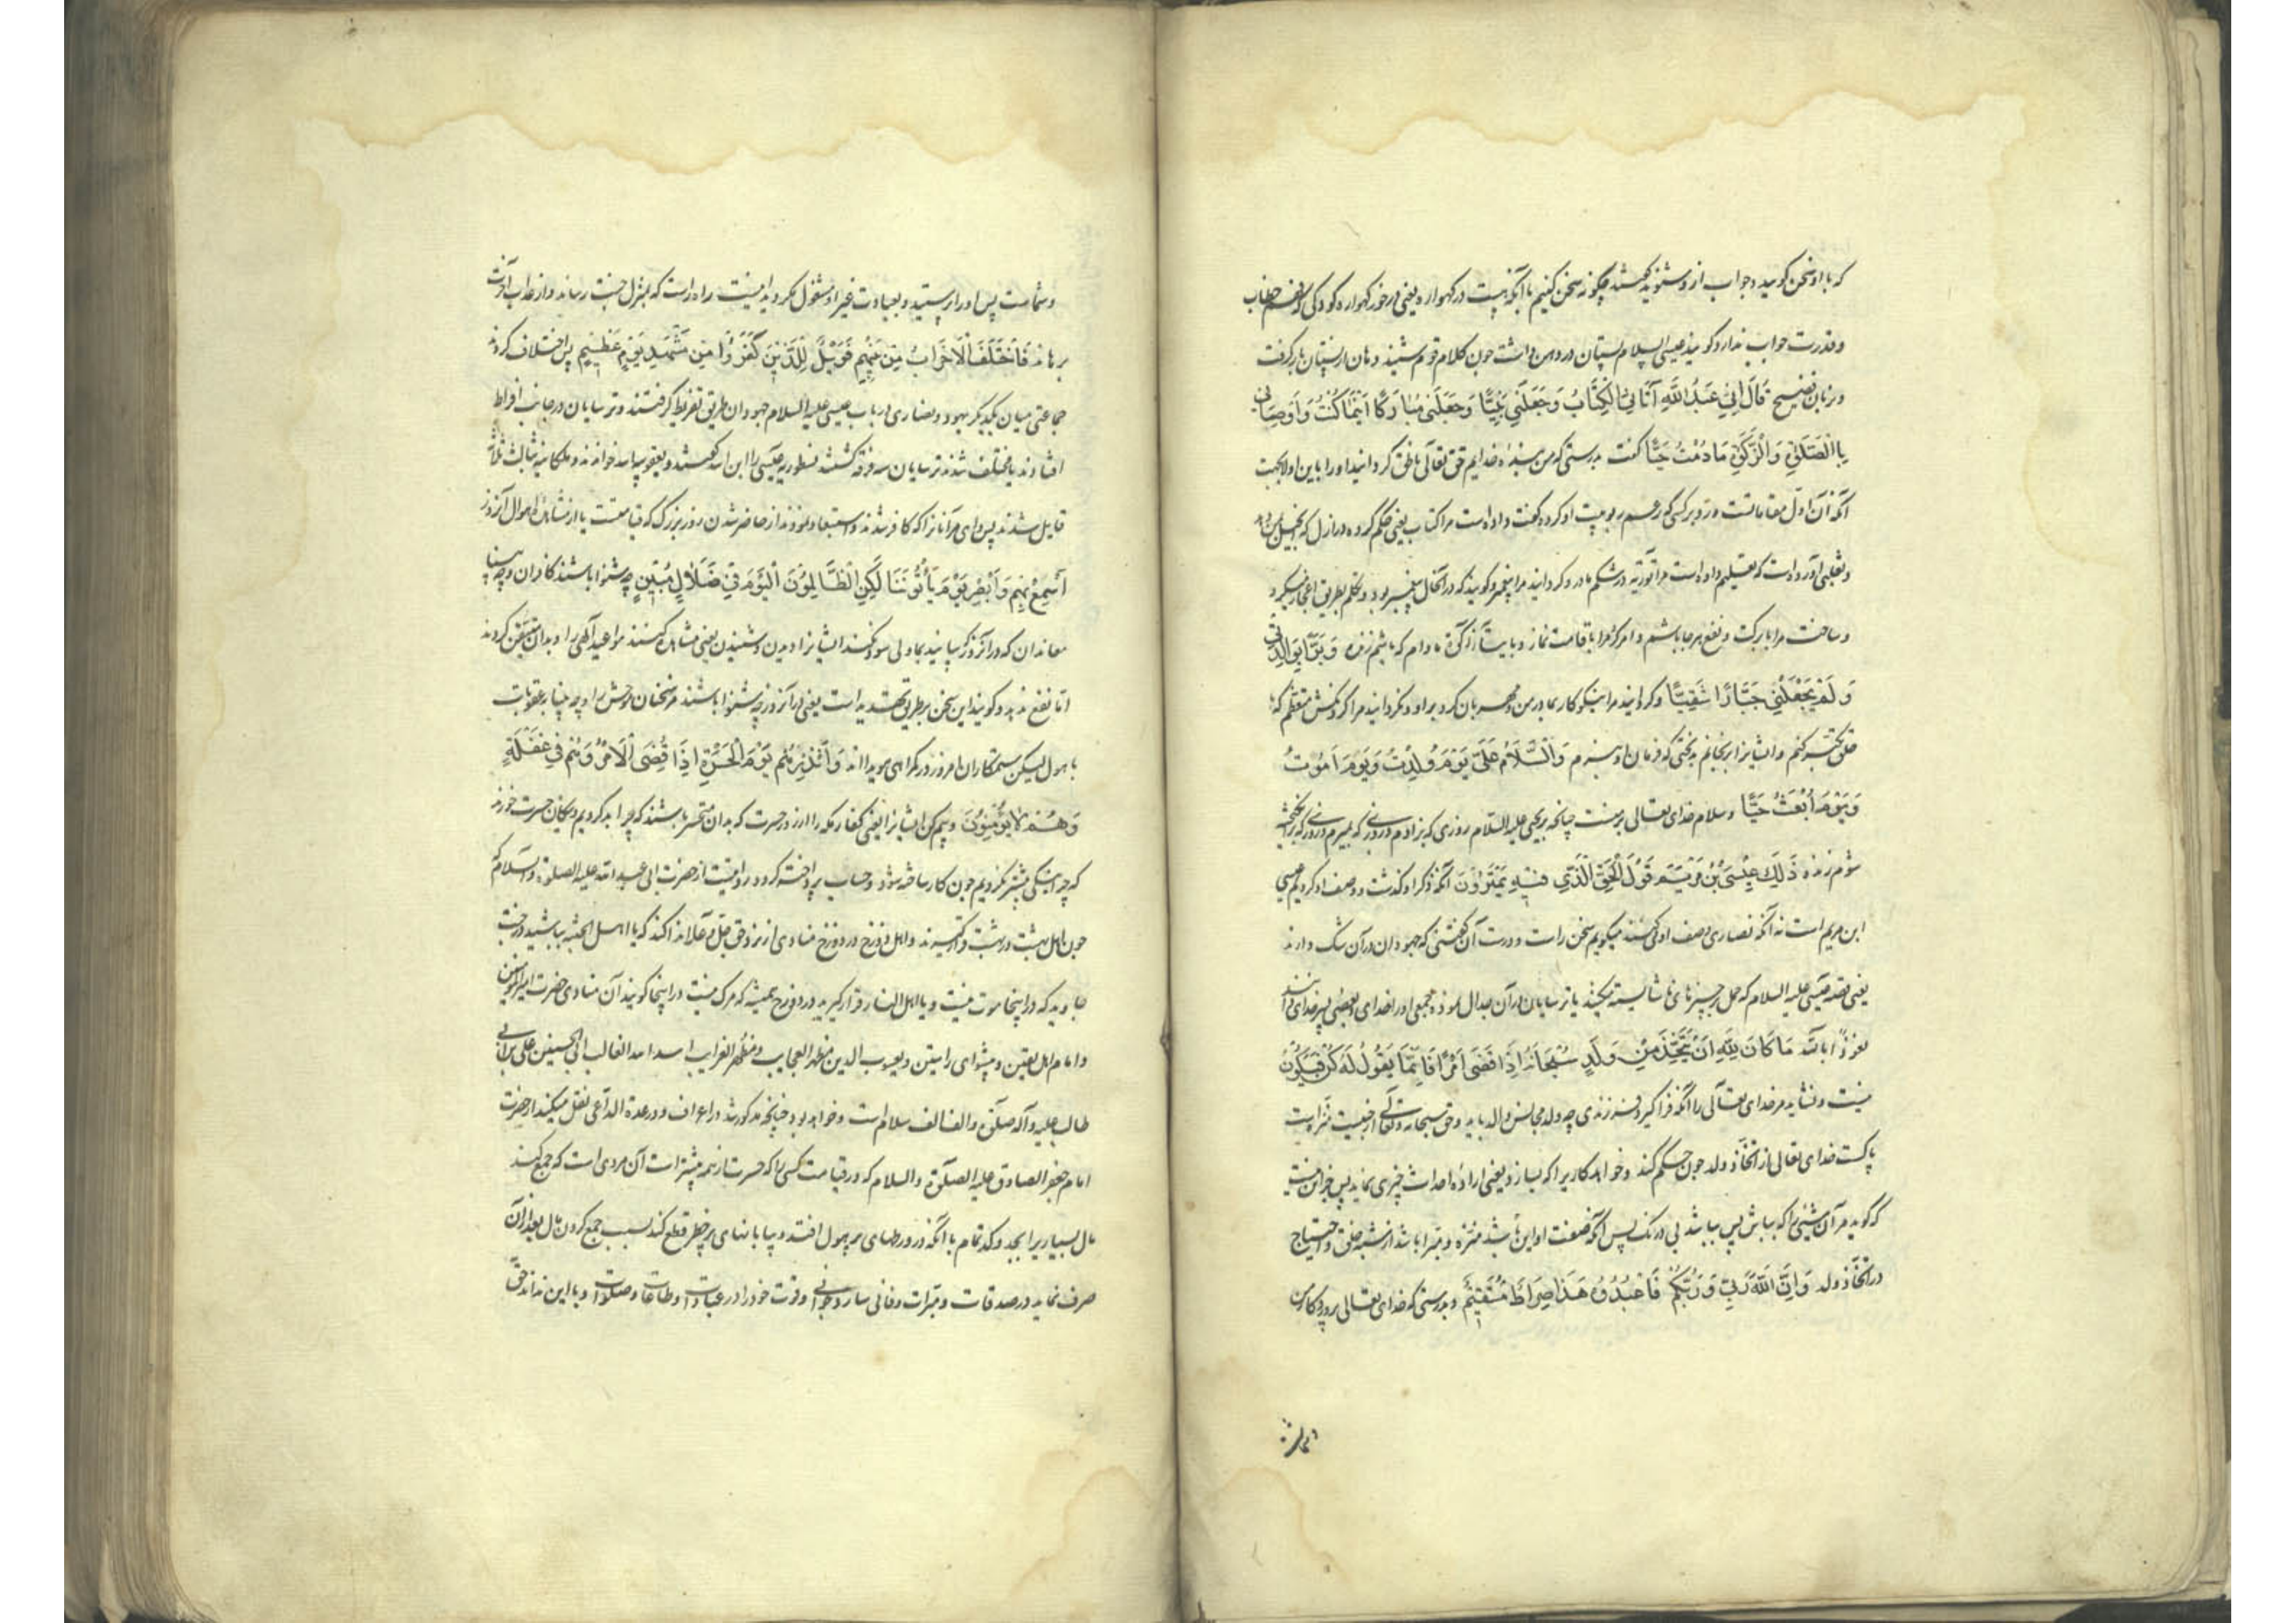 که با او سخن گویید و جواب از و شنوید گفتند چگونه سخن کنیم با آنکه هست در کهواره یعنی در خور کهواره کودکی که فهم خطاب
و قدرت جواب ندارد گویند عیسی علیه السلام پستان در دهن داشت چون کلام قوم شنید دهان از پستان باز گرفت
و بزبان فصیح قَالَ اِنِّی عَبْدُ اللّٰهِ آتَانِیَ الْکِتَابَ وَجَعَلَنِی نَبِیًّا وَجَعَلَنِی مُبَارَکًا اَیْنَمَا کُنْتُ وَاَوْصَانِی
بِالصَّلٰوةِ وَالزَّکٰوةِ مَادُمْتُ حَیًّا گفت بدرستی که من بنده خدایم حق تعالی ناطق گردانید او را باین اولا بجهت
آنکه آن اول مقاماتست و رد بر کسی که زعم ربوبیت او کرد و گفت داده است مرا کتاب یعنی حکم کرده در ازل که انجیل بمن دهد
و ثعلبی آورده است که تعلیم داده است مرا توریة در شکم مادر و گردانید مرا پیغمبر و گویند که در آنحال پیغمبر بود و تکلم بطریق اعجاز میکرد
و ساخت مرا با برکت و نفع هر جا باشم و امر کرد مرا باقامت نماز و بایتاء زکوة مادام که باشم زنده وَبَرًّا بِوَالِدَتِی
وَلَمْ یَجْعَلْنِی جَبَّارًا شَقِیًّا و گردانید مرا نیکوکار بمادر من و مهربان کرد بر او و نگردانید مرا گردنکش متعظم که با
خلق تکبر کنم و ایشانرا برنجانم بدبختی که فرمان او نبرم وَالسَّلَامُ عَلَیَّ یَوْمَ وُلِدْتُ وَیَوْمَ اَمُوتُ
وَیَوْمَ اُبْعَثُ حَیًّا و سلام خدای تعالی بر منست چنانچه بر یحیی علیه السلام روزی که بزادم و روزی که بمیرم و روزی که برانگیخته
شوم زنده ذٰلِکَ عِیْسَی بْنُ مَرْیَمَ قَوْلَ الْحَقِّ الَّذِی فِیْهِ یَمْتَرُوْنَ آنکه ذکر او گذشت و وصف او کردیم عیسی
ابن مریم است نه آنکه نصاری وصف او می کنند میگویم سخن راست و درست آن گفتنی که جهودان در آن شک دارند
یعنی قصه عیسی علیه السلام که حمل بر چیزهای ناشایسته میکنند یا ترسایان در آن جدال نموده جمعی او را خدای و بعضی پسر خدای دانند
نعوذ بالله مَا کَانَ لِلّٰهِ اَنْ یَتَّخِذَ مِنْ وَلَدٍ سُبْحَانَهُ اِذَا قَضٰی اَمْرًا فَاِنَّمَا یَقُوْلُ لَهُ کُنْ فَیَکُوْنُ
نیست و نشاید مر خدای تعالی را آنکه فرا گیرد فرزندی چه ولد مجانس والد باید و حق سبحانه و تعالی از جنسیت مبراست
پاکست خدای تعالی از اتخاذ ولد چون حکم کند و خواهد کاریرا که بسازد یعنی اراده احداث چیزی نماید پس جز این نیست
که گوید مر آن شیء را که بباش پس بباشد بی درنک پس آنکه صفت او این باشد منزه و مبرا باشد از شبه خلق و احتیاج
در اتخاذ ولد وَاِنَّ اللّٰهَ رَبِّی وَرَبُّکُمْ فَاعْبُدُوْهُ هٰذَا صِرَاطٌ مُسْتَقِیْمٌ و بدرستی که خدای تعالی پروردگار من
و شماست پس او را پرستید و بعبادت غیر او مشغول مگردید اینست راه راست که بمنزل جنت رساند و از عذاب آخرت
برهاند فَاخْتَلَفَ الْاَحْزَابُ مِنْ بَیْنِهِمْ فَوَیْلٌ لِلَّذِیْنَ کَفَرُوْا مِنْ مَشْهَدِ یَوْمٍ عَظِیْمٍ پس اختلاف کردند
جماعتی میان یکدیگر یهود و نصاری در باب عیسی علیه السلام جهودان طریق تفریط گرفتند و ترسایان در جانب افراط
افتادند یا مختلف شدند ترسایان سه فرقه گشتند نسطوریه عیسی را ابن الله گفتند و یعقوبیه الله خواندند و ملکانیه ثالث ثلثة
قایل شدند پس وای مر آنانرا که کافر شدند و استبعاد نمودند از حاضر شدن روز بزرک که قیامتست یا از مشاهده اهوال آنروز
اَسْمِعْ بِهِمْ وَاَبْصِرْ یَوْمَ یَأْتُوْنَنَا لٰکِنِ الظَّالِمُوْنَ الْیَوْمَ فِی ضَلَالٍ مُبِیْنٍ چه شنوا باشند کافران و چه بینا
معاندان که در آنروز که بیایند بما ولی سود نکند ایشانرا دیدن و شنیدن یعنی مشاهده کنند مواعید الهی را و بدان متیقن گردند
اما نفع ندهد و گویند این سخن بر طریق تهدید است یعنی در آنروز چه شنوا باشند مر سخنان موحش را و چه بینا بعقوبات
با هول لیکن ستمکاران امروز در گمراهی هویدا اند وَاَنْذِرْهُمْ یَوْمَ الْحَسْرَةِ اِذْ قُضِیَ الْاَمْرُ وَهُمْ فِی غَفْلَةٍ
وَهُمْ لَا یُؤْمِنُوْنَ و بیم کن ایشانرا یعنی کفار مکه را از روز حسرت که بدان متحسر باشند که چرا بد کردیم و نیکان حسرت خورند
که چرا نیکی بیشتر نکردیم چون کار ساخته شود و حساب پرداخته گردد روایتست از حضرت ابی عبد الله علیه الصلوة والسلام که
چون اهل بهشت در بهشت قرار گیرند و اهل دوزخ در دوزخ منادی از نزد حق جل و علا ندا کند که یا اهل الجنه بباشید در جنت
جاوید که در اینجا موت نیست و یا اهل النار قرار گیرید در دوزخ همیشه که مرک نیست در اینجا گویند آن منادی حضرت امیر المؤمنین
و امام اهل یقین و پیشوای راستین و یعسوب الدین مظهر العجایب و مظهر الغرایب اسد الله الغالب ابی الحسنین علی بن ابی
طالب علیه و آله صلوة و الف الف سلام است و خواهد بود چنانچه مذکور شد در اعراف و در عدة الداعی نقل میکند از حضرت
امام جعفر الصادق علیه الصلوة والسلام که در قیامت کسی را که حسرت از همه بیشتر است آن مردی است که جمع کند
مال بسیار برا بجد و کد تمام با آنکه در ورطهای پر هول افتد و بیابانهای پر خطر قطع کند بسبب جمع کردن مال بعد از آن
صرف نماید در صدقات و مبرات و فانی سازد جوانی و قوت خود را در عبادات و طاعات و صلوات و با این نداند حق